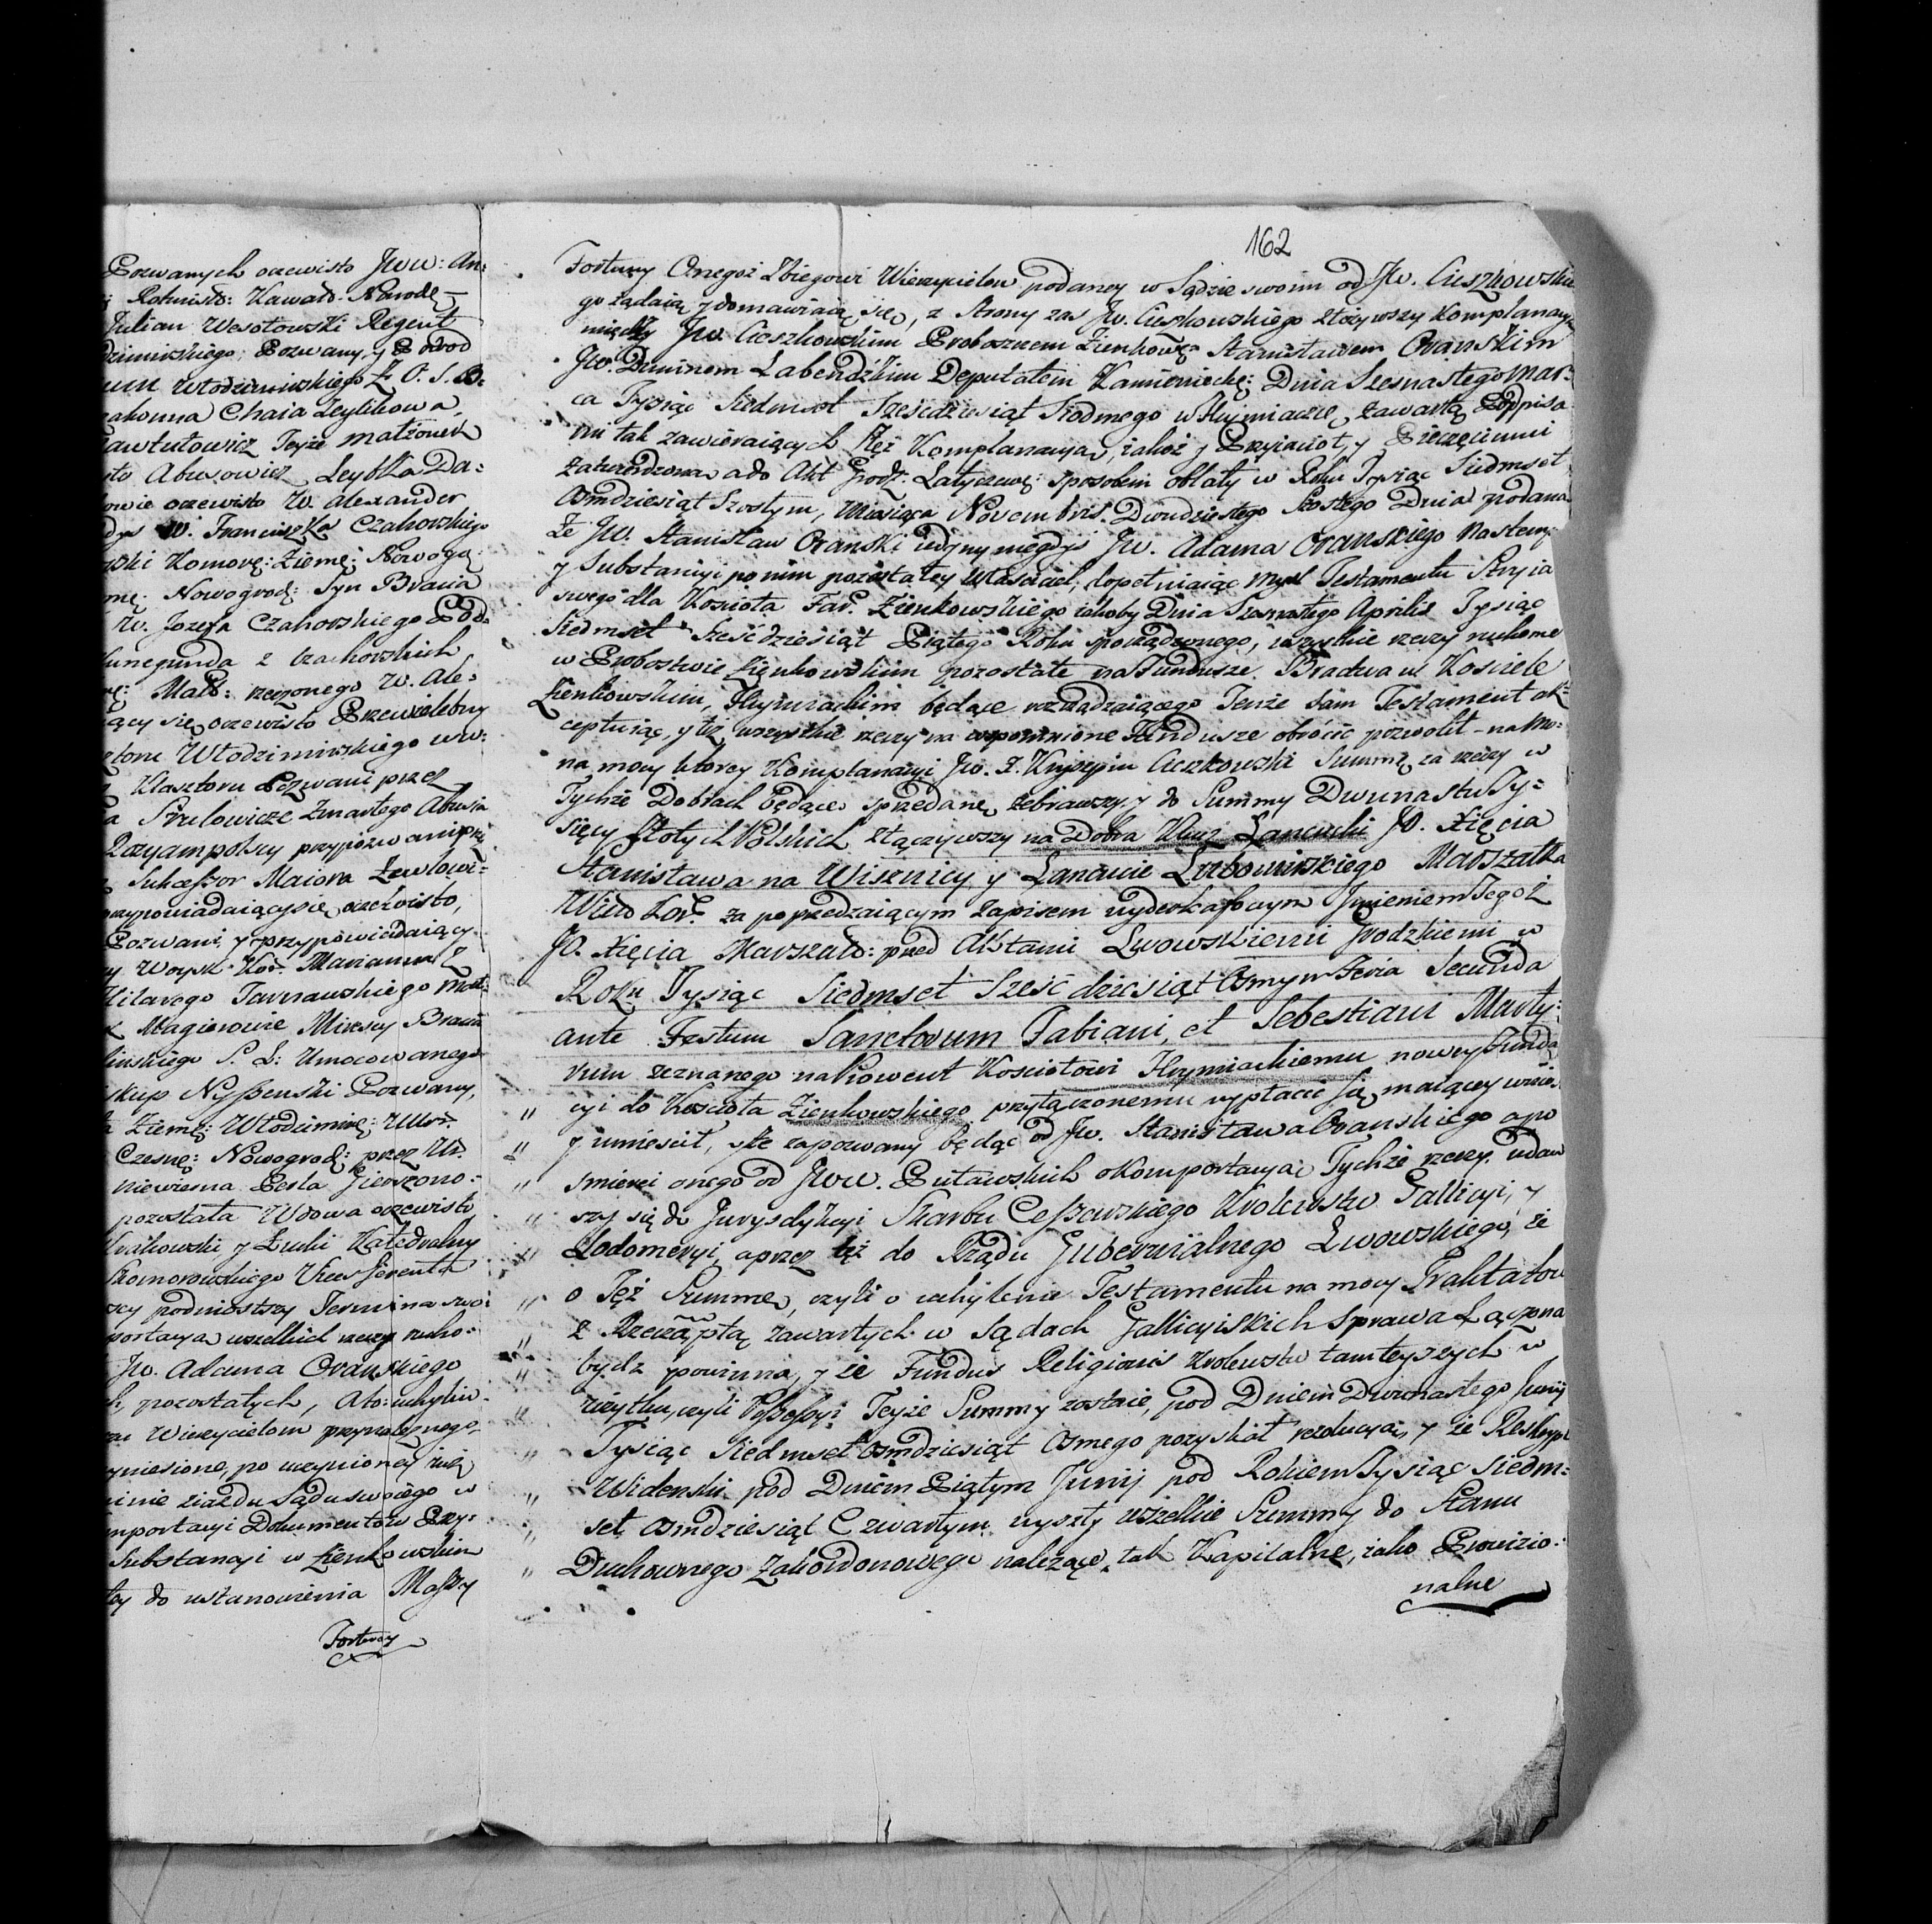 Pozwanych oczewisto Jww: An:
Rotmist: Kawal: Narodę
Julian Wesołowski Regent
dzimirskiego; Pozwany, y Powod
Włodzimirskiego Z. O. S. B:
zakonna Chaia Zeylikowa,
Jeyże małżonek
Abusowicz Leybka Da:
owie oczewisto W. Alexander
W. Franciszka Czahorskiego
ski Komorę: Ziemę: Nowogę:
Nowogrodę: Syn Brauia
W. Jozefa Czahorskiego Pod:
Kunegunda z Czachorskich
Mał: rzeczonego W. Ale:
iący się oczewisto Przewielebny
sztoru Włodzimirskiego ww:
Klasztoru Pozwani przez
Srulowicze zmarłego Abusia
przypozwani prze
Sukcessor Maiora Zawłowi:
przypowiadaiący się oczewisto,
Pozwani, y przypowiadaiący
Woysk. Kor. Marianna z
Hilarego Tarnawskiego Mał:
Magierowie Mirscy Bracia
lińskiego S. L: Umocowanego
skup Nyssenski Pozwany,
Ziemę: Włodzimirę: Uur.
Czesnę: Nowogrodę: przez Ur.
niewierna Perla Gierszono:
pozostała Wdowa oczewisto
Krakowski, y Łucki Katedralny
Komorowskiego Vices Gerenta
podniosłszy Termina swo:
portacya wszelkich rzeczy rucho:
Jw. Adama Oranskiego
h, pozostałych, Ato: uchylen:
Wierzycielom przynależnego,
wyniesione, po uczynioney
ninie ziazdu Sądu swoiego w
mportacyi Dokumentow Przy:
Substancyi w Zienkowskim
tey do ustanowienia Massy
Fortuny
162
Fortuny Onegoż Zbiegowi Wierzycielow podaney w Sądzie swoim od Jw. Cieszkowskie
go żądaią y domawiaią się, z Strony zas Jw. Cieszkowskiego złożywszy Komplanacyą
między Jw. Cieszkowskim Proboszczem Zienkowę: Stanisławem Oranskim
Jw. Duninem Łabendzkim Deputatem Kamienieckę: Dnia Szesnastego Mar:
ca Tysiąc Siedmset Sześcdziesiąt Siodmego w Hrymiaczce zawartą Podpisa
mi tak zawieraiących Też Komplanacyą, iakoż y Przyiacioł, y Pieczęciami
zatwierdzona ado Akt Grodz. Latyczewę: sposobem oblaty w Roku Tysiąc Siedmset
Osmdziesiąt Szostym, Miesiąca Novembris Dwudziestego Szostego Dnia podana
że Jw. Stanisław Oranski iedyny niegdyś Jw. Adama Oranskiego Następ
y Substancyi po nim pozostałey własciciel, dopełniaiąc mysl Testamentu Stryia
swego dla Kosciola Far. Zienkowskiego iakoby Dnia Szesnastego Aprilis Tysiąc
Siedmset Sześćdziesiąt Piątego Roku sporządzonego, wszystkie rzeczy ruchome
w Probostwie Zienkowskim pozostałe na Fundusze Bractwa w Kosciele
Zienkowskim, Hrymiackim będące rozrządzaiącego Tenże sam Testament ak:
ceptuiąc, y też wszystkie rzeczy na wspomnione Fundusze obrócić pozwolił – na Mo:
na mocy ktorey Komplanacyi Jw. X. Knyszpin Cieszkowski Summę za rzeczy w
Tychże Dobrach będące sprzedane zebrawszy, y do Summy Dwunastu Ty:
sięcy Złotych Polskich złączywszy na Dobra Klucz Łancucki JO. Xięcia
Stanisława na Wisznicy y Łancucie Lubomirskiego Marszałka
Wielo Kor. za poprzedzaiącym zapisem wyderkafowym Jmieniem Tegoż
JO. Xięcia Marszał: przed Aktami Lwowskiemi Grodzkiemi w
Roku Tysiąc Siedmset Sześćdziesiąt Osmym Feria Secunda
ante Festum Sanctorum Fabiani, et Sebestiani Marty:
rum zeznanego na Prowent Kosciołowi Hrymiackiemu nowey Funda
cyi do Kosciola Zienkowskiego przyłączonemu wypłacać się maiącey wnios
y umiescił, że zapozwany będąc od Jw. Stanisława Oranskiego apo
smierci onego od Jww. Puławskich okomportacyą Tychże rzeczy, udaw
szy się do Jurysdykcyi Skarbu Cessarskiego Krolewstw Gallicyi, y
Lodomeryi, aprzez też do Rządu Guberniialnego Lwowskiego, że
o Też Summę, czyli o uchylenie Testamentu na mocy Traktatow
z Rzecząptą zawartych w Sądach Gallicyiskich Sprawa Łączona
bydz powinna, y że Fundus Religionis Krolewstw tamteyszych w
użytku, czyli Possessyi Teyże Summy zostaie, pod Dniem Dwunastego Junij
Tysiąc Siedmset Osmdziesiąt Osmego pozyskał rezolucyą, y że Reskrypt
Widenski pod Dniem Piątym Junij pod Rokiem Tysiąc Siedm:
set Osmdziesiąt Czwartym wyszły wszelkie Summy do Stanu
Duchownego Zakordonowego należące, tak Kapitalne, iako Prowizio:
nalne